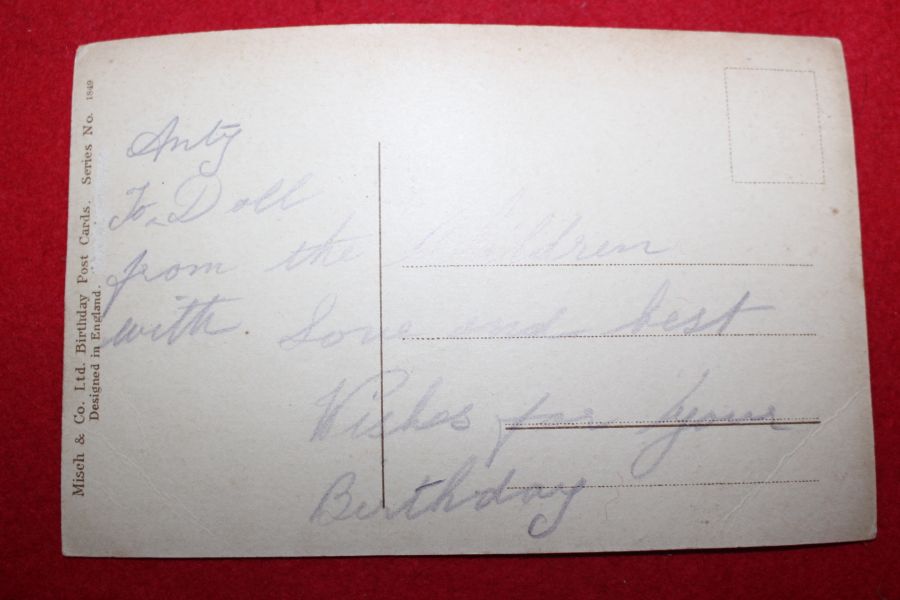 Misch & Co. Ltd. Birthday Post Cards. Series No. 1849
Designed in England.
Anty
To Doll
from the Children
with Love and best
Wishes for your
Birthday